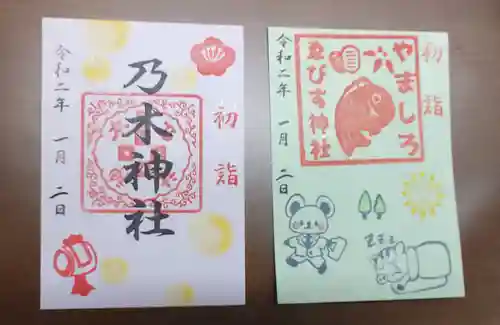 令和二年 一月 二日
乃木神社
初詣
令和二年 一月 二日
やましろ
ゑびす神社
初詣